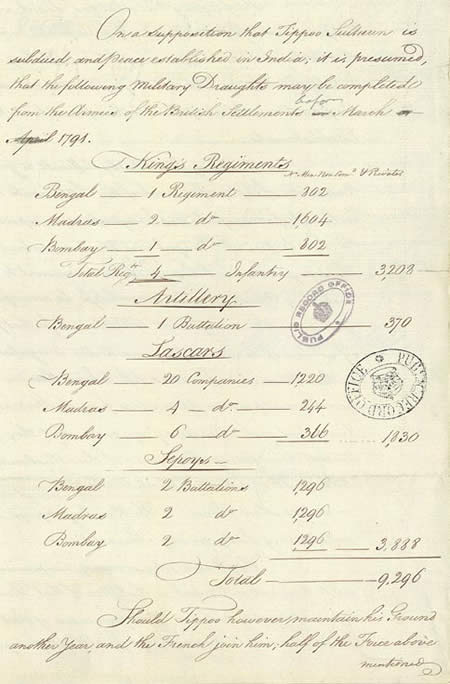 On a supposition that Tippoo Sultaun is
subdued, and peace established in India, it is presumed,
that the following Military Draughts may be completed
from the Armies of the British Settlements in before March or
April 1791.
King's Regiments
Non Com.d & Privates
Bengal — 1 Regiment — 802
Madras — 2 — do — 1,604
Bombay — 1 — do — 802
Total Regts 4 — Infantry — 3,208
Artillery
Bengal — 1 Battalion — 370
Lascars
Bengal — 20 Companies — 1220
Madras — 4 — do — 244
Bombay — 6 — do — 366 ...... 1,830
Sepoys —
Bengal 2 Battalions 1,296
Madras 2 do 1,296
Bombay 2 do 1296 — 3,888
Total — 9,296
Should Tippoo however, maintain his Ground
another Year, and the French join him; half of the Force above
mentioned
PUBLIC RECORD OFFICE
PUBLIC RECORD OFFICE